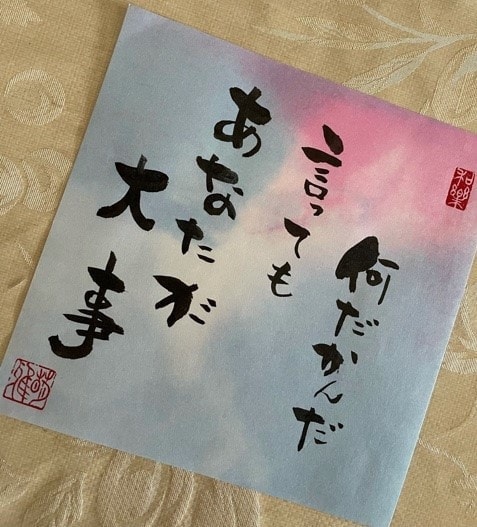 何だかんだ
言っても
あなたが
大事
和樂